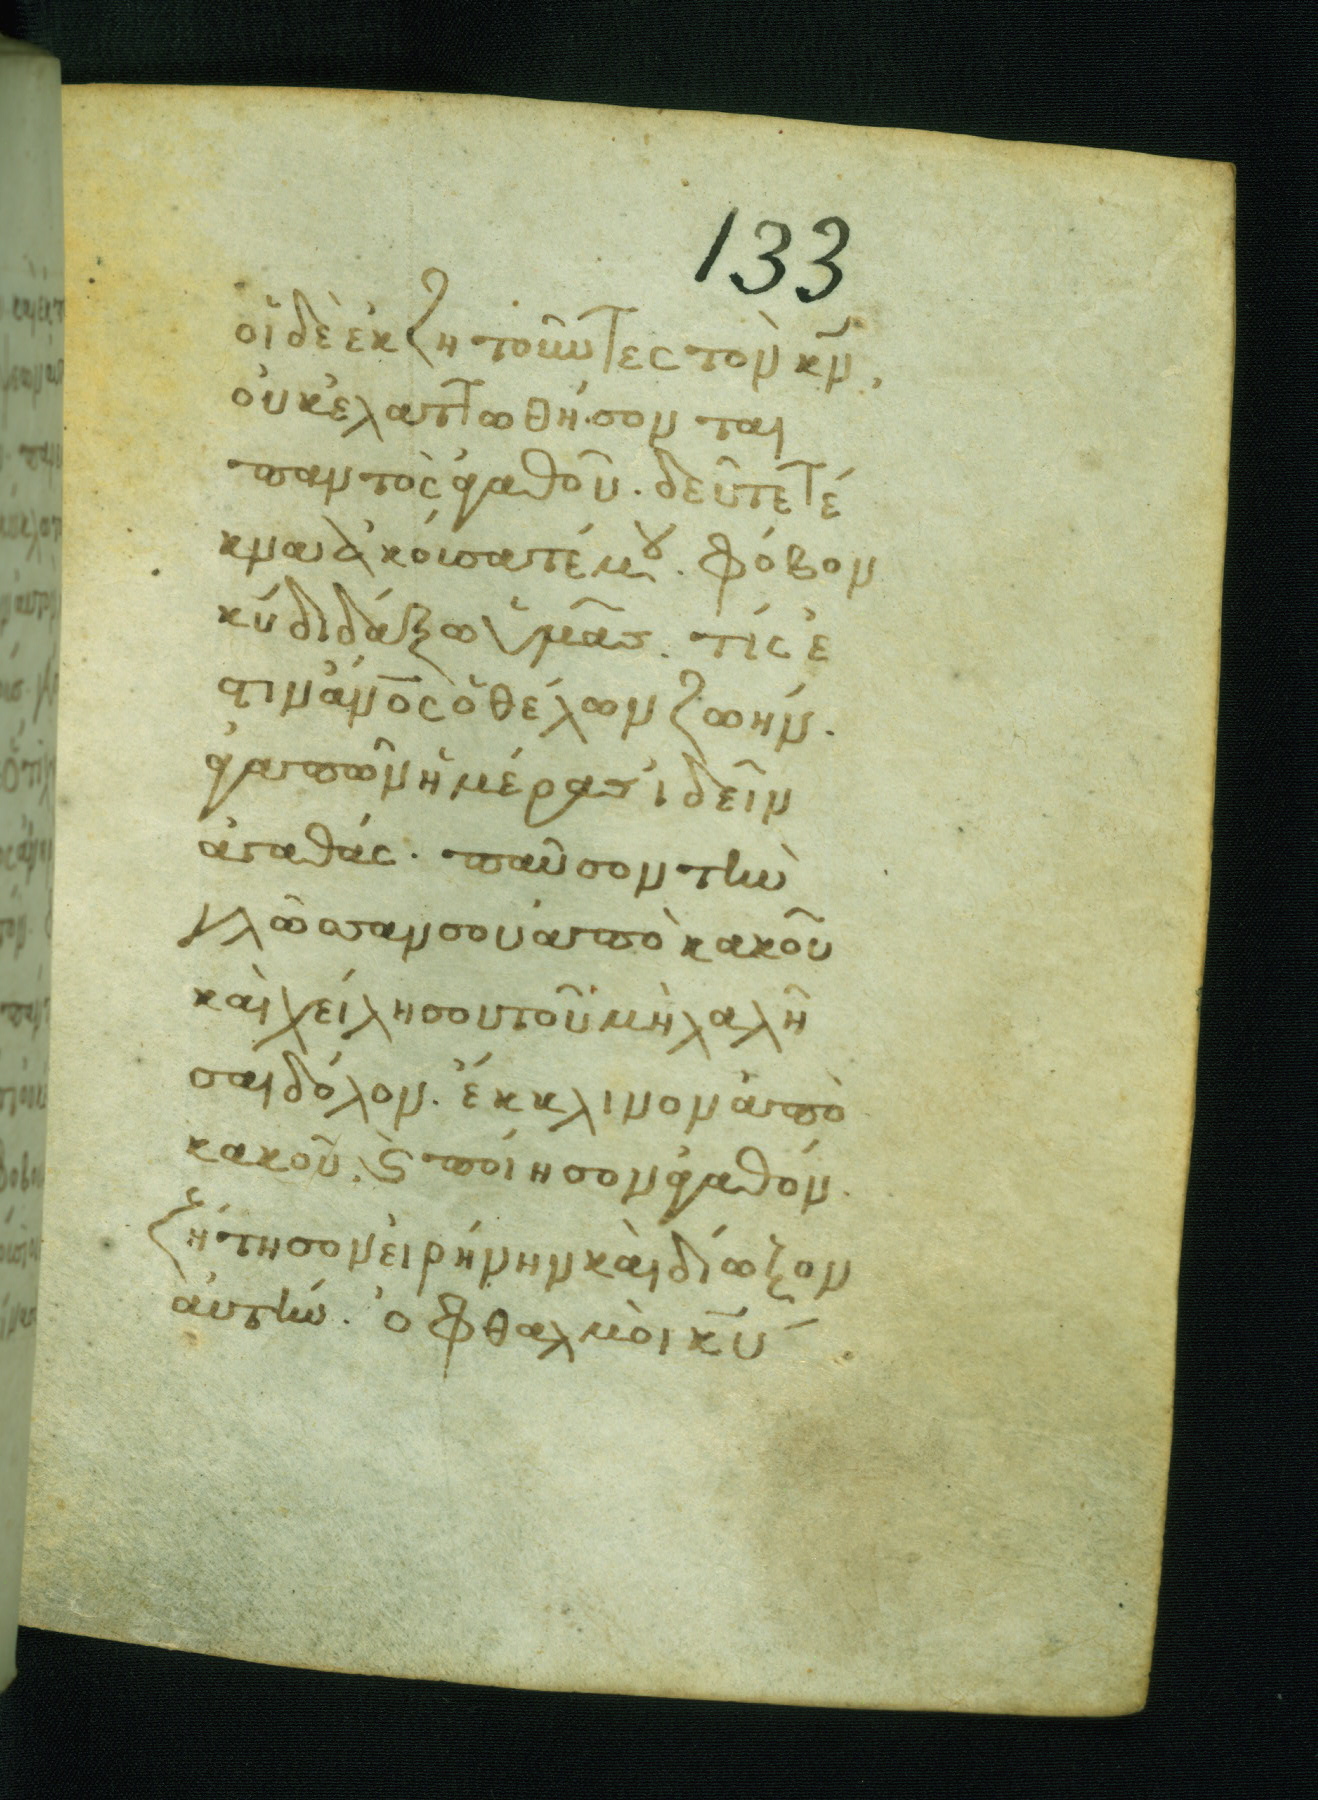 133
οἱ δὲ ἐκζητοῦντες τὸν κ̅ν̅,
οὐκ ἐλαττωθήσονται
παντὸς ἀγαθοῦ. δεῦτε τέ
κνα ἀκούσατέ μου. φόβον
κ̅υ̅ διδάξω ὑμᾶς. τίς ἐ
στιν ἄν̅ο̅ς ὁ θέλων ζωήν.
ἀγαπῶν ἡμέρας ἰδεῖν
ἀγαθάς. παῦσον τὴν
γλῶσσαν σου ἀπὸ κακοῦ
καὶ χείλη σου τοῦ μὴ λαλῆ
σαι δόλον. ἔκκλινον ἀπὸ
κακοῦ. ϗ ποίησον ἀγαθόν.
ζήτησον εἰρήνην καὶ δίωξον
αὐτήν. ὀφθαλμοὶ κ̅υ̅